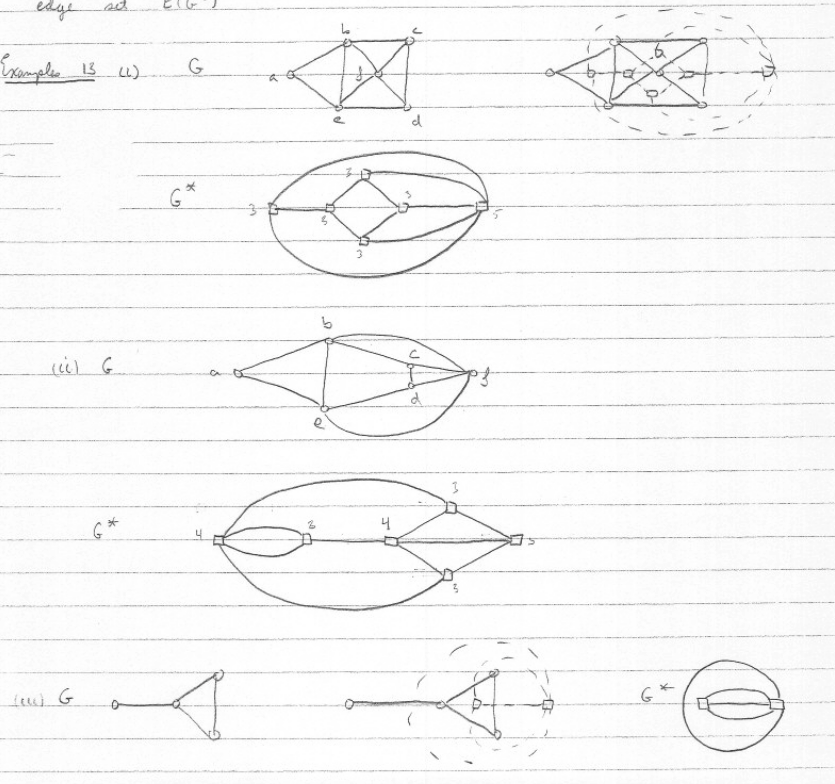 edge set E(G*)
Examples 13 (i) G
a b c f e d
G*
3 3 3 3 3 5
(ii) G
a b c d e f
G*
4 3 4 3 3 3
(iii) G
G*